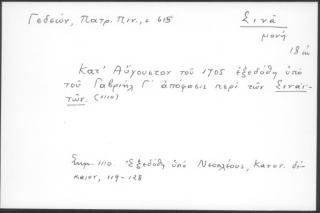 Γεδεών, Πατρ. Πιν., σ 615
Σινᾶ
μονή
18 αι
Κατ' Αὔγουστον τοῦ 1705 ἐξεδόθη ὑπὸ
τοῦ Γαβριὴλ Γ΄ ἀπόφασις περὶ τῶν Σιναϊ-
τῶν. (1110)
Σημ. 1110. Ἐξεδόθη ὑπὸ Νεοκλέους, Κανον. δί-
καιον, 119-128